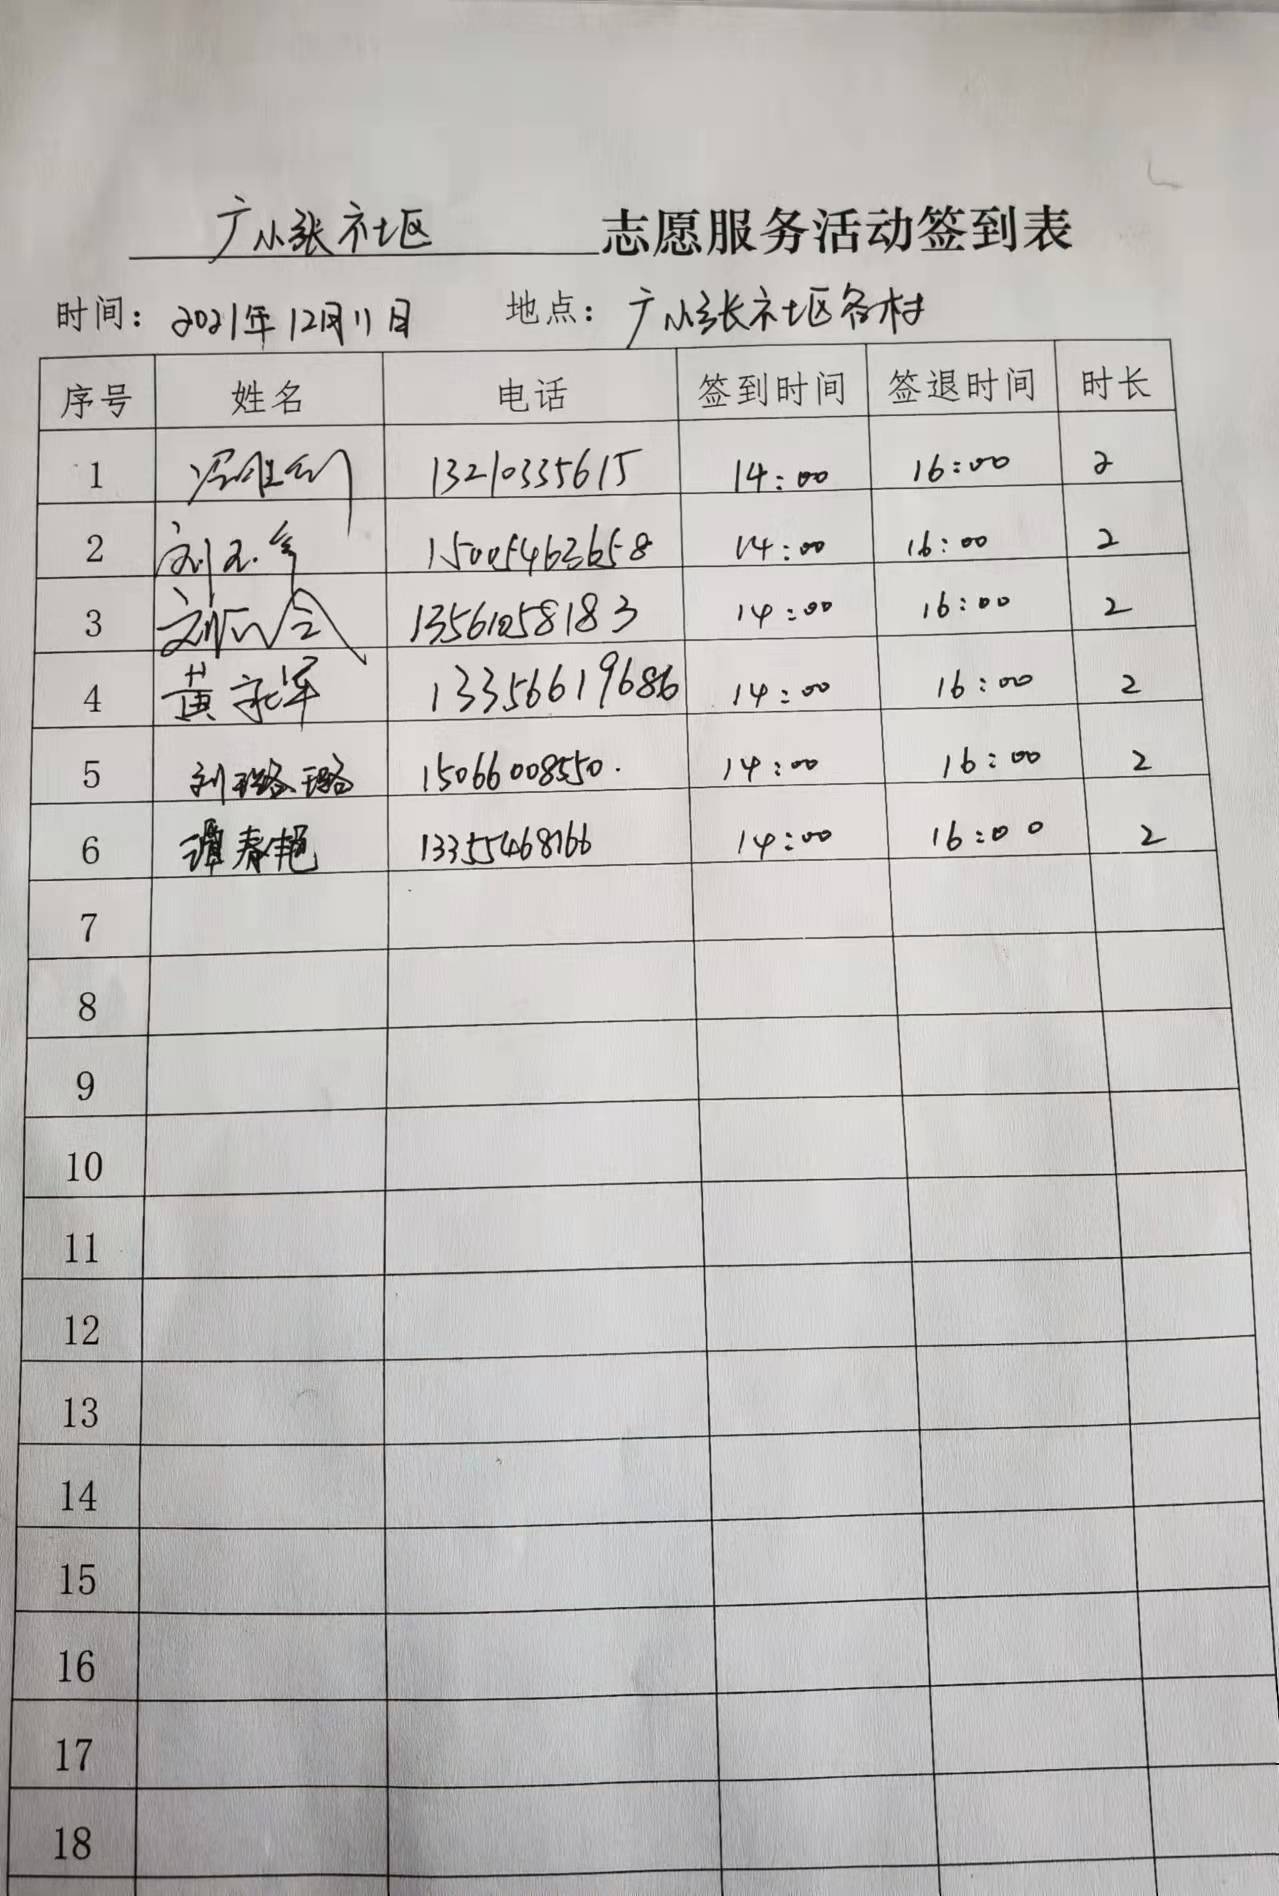 广小张社区 志愿服务活动签到表
时间: 2021年12月11日 地点: 广小张社区各村
序号 姓名 电话 签到时间 签退时间 时长
1 13210335615 14:00 16:00 2
2 刘 15005463658 14:00 16:00 2
3 13561058183 14:00 16:00 2
4 黄永军 13356619686 14:00 16:00 2
5 刘璐璐 15066008550. 14:00 16:00 2
6 谭春艳 13355468766 14:00 16:00 2
7
8
9
10
11
12
13
14
15
16
17
18